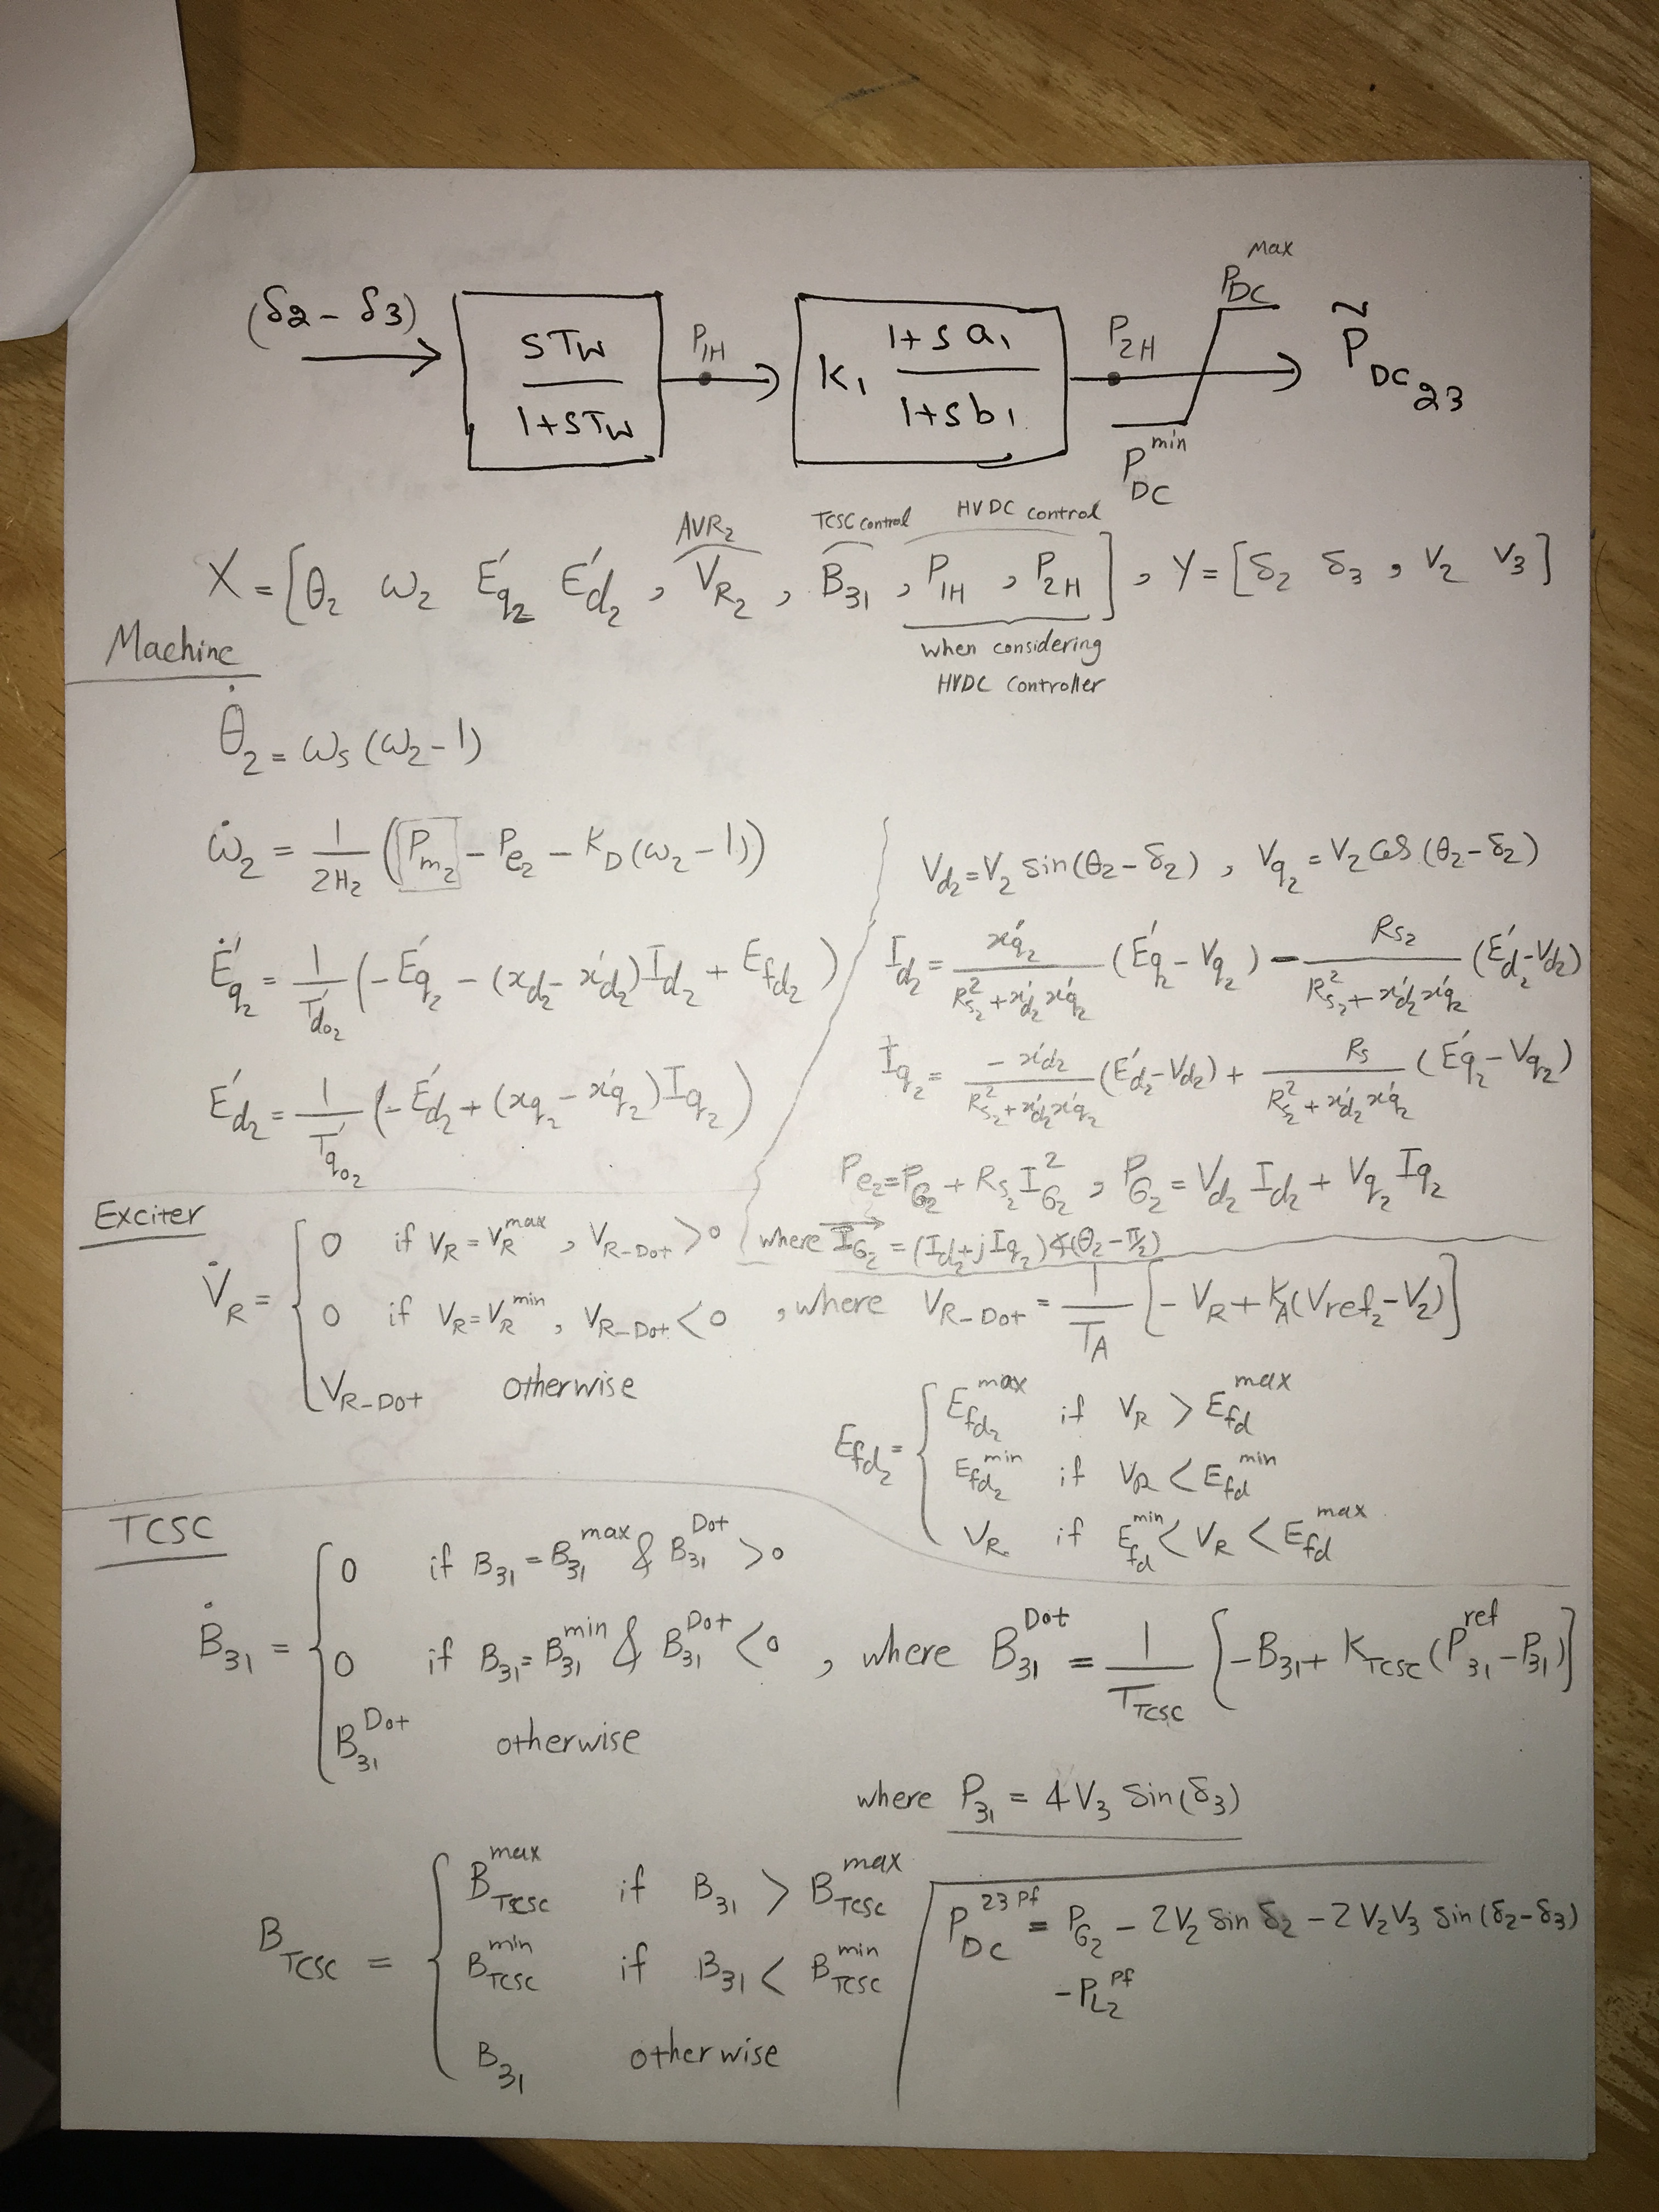 (δ2 - δ3) → [ sTw / (1+sTw) ] P1H → [ k1 (1+s a1) / (1+s b1) ] P2H → P̃DC23
PDC^max
PDC^min
AVR2 TCSC control HVDC control
X = [θ2 ω2 E'q2 E'd2 , VR2 , B31 , P1H , P2H] , Y = [δ2 δ3 , V2 V3]
when considering
HVDC controller
Machine
θ̇2 = ωs (ω2 - 1)
ω̇2 = 1/(2H2) (Pm2 - Pe2 - KD (ω2 - 1))
Vd2 = V2 sin(θ2 - δ2) , Vq2 = V2 cos(θ2 - δ2)
Ė'q2 = 1/T'do2 (-E'q2 - (xd2 - x'd2) Id2 + Efd2)
Id2 = x'q2/(Rs2^2 + x'd2 x'q2) (E'q2 - Vq2) - Rs2/(Rs2^2 + x'd2 x'q2) (E'd2 - Vd2)
Iq2 = -x'd2/(Rs2^2 + x'd2 x'q2) (E'd2 - Vd2) + Rs/(Rs2^2 + x'd2 x'q2) (E'q2 - Vq2)
Ė'd2 = 1/T'qo2 (-E'd2 + (xq2 - x'q2) Iq2)
Pe2 = PG2 + Rs2 IG2^2 , PG2 = Vd2 Id2 + Vq2 Iq2
where IG2 = (Id2 + j Iq2) ∡(θ2 - π/2)
Exciter
V̇R = { 0 if VR = VR^max , VR-Dot > 0
0 if VR = VR^min , VR-Dot < 0 , where VR-Dot = 1/TA [-VR + KA (Vref2 - V2)]
VR-Dot otherwise
Efd2 = { Efd2^max if VR > Efd^max
Efd2^min if VR < Efd^min
VR if Efd^min < VR < Efd^max
TCSC
Ḃ31 = { 0 if B31 = B31^max & B31^Dot > 0
0 if B31 = B31^min & B31^Dot < 0 , where B31^Dot = 1/TTCSC [-B31 + KTCSC (P31^ref - P31)]
B31^Dot otherwise
where P31 = 4 V3 sin(δ3)
BTCSC = { BTCSC^max if B31 > BTCSC^max
BTCSC^min if B31 < BTCSC^min
B31 otherwise
PDC^23 pf = PG2 - 2V2 sin δ2 - 2 V2 V3 sin(δ2 - δ3)
- PL2^pf